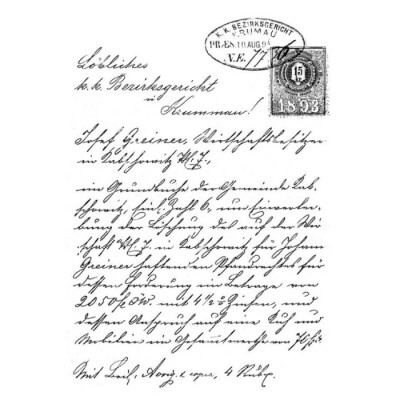 K.K. BEZIRKSGERICHT
KRUMAU
PRÆS. 10. AUG. 93
15
kr
1893
Löbliches
k. k. Bezirksgericht
in
Krummau!
Josef Greiner, Wirtschaftsbesitzer
in Kabschowitz N. 7.,
im Grundbuche der Gemeinde Kab-
schowitz, Einl. Zahl 6, um Einverlei-
bung der Löschung des auf der Wir-
schaft N. 7. in Kabschowitz für Johann
Greiner haftenden Pfandrechtes für
dessen Forderung im Betrage von
2050 fl. ö. W. mit 4 ½ % Zinsen, und
dessen Anspruch auf eine Kuh und
Mobilien im Gesammtwerthe von 70 fl.
Mit Beil. 4 Rubr.